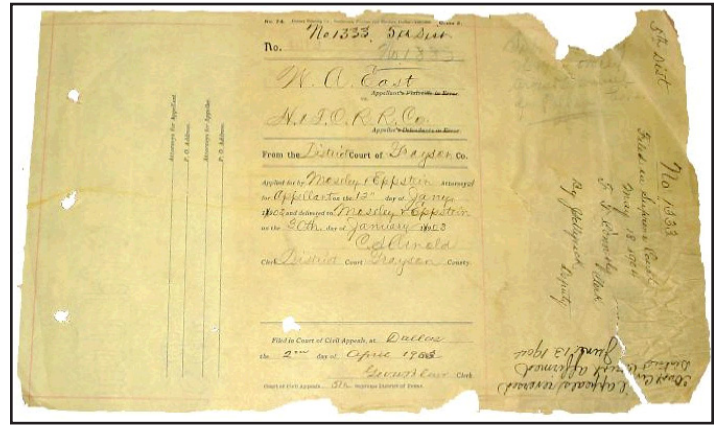 No 1333. 5th Dist
No. No 1333
W. A. East
Appellant's Plaintiffs in Error
vs.
H. & T. C. R. R. Co.
Appellee's Defendants in Error
From the District Court of Grayson Co.
Applied for by Moseley & Eppstein Attorneys
for Appellant on the 12" day of Jany
1903 and delivered on Moseley & Eppstein
on the 30th. day of January 1903
C S Arnold
Clerk District Court Grayson County
Filed in Court of Civil Appeals, at Dallas
the 2nd day of April 1903
Geo W Blair Clerk
Court of Civil Appeals, 5th Supreme District of Texas.
Attorneys for Appellant.
P. O. Address.
Attorneys for Appellee.
P. O. Address.
5th Dist
No 1333
Filed in Supreme Court
May 18 1904
Clerk
By Deputy
Court Civil appeals reversed
District Court affirmed
June 13 1904